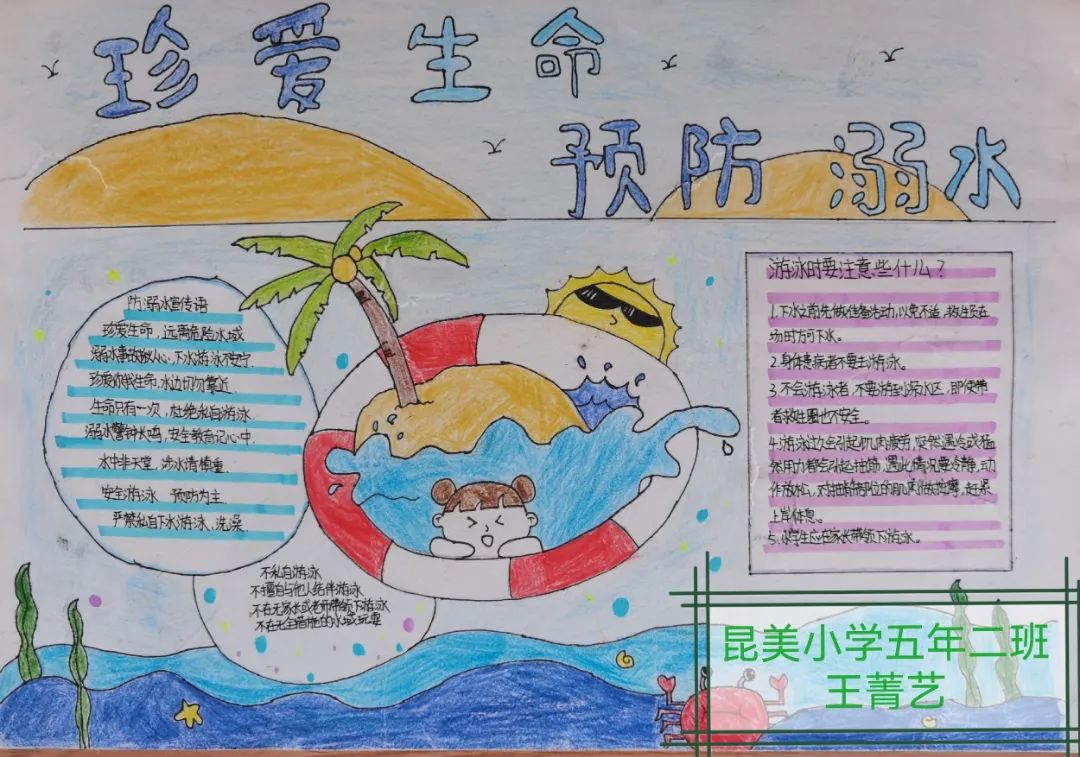 珍爱生命
预防溺水
防溺水宣传语
珍爱生命，远离危险水域
溺水事故揪人心，下水游泳不安宁.
珍爱你我生命，水边切勿靠近.
生命只有一次，杜绝私自游泳.
溺水警钟长鸣，安全教育记心中.
水中非天堂，涉水请慎重.
安全游泳 预防为主
严禁私自下水游泳、洗澡.
不私自游泳
不擅自与他人结伴游泳
不在无家长或老师带领下游泳
不在无安全措施的水域玩耍
游泳时要注意些什么？
1.下水之前先做准备活动，以免不适，救生员在
场时方可下水。
2.身体患病者不要去游泳。
3.不会游泳者，不要游到深水区，即使带
着救生圈也不安全。
4.游泳边会引起肌肉疲劳，突然遇冷或猛
然用力都会引起抽筋，遇此情况要冷静，动
作放松，对抽筋部位的肌肉做按摩，赶紧
上岸休息。
5.小学生应在家长带领下游泳。
昆美小学五年二班
王菁艺